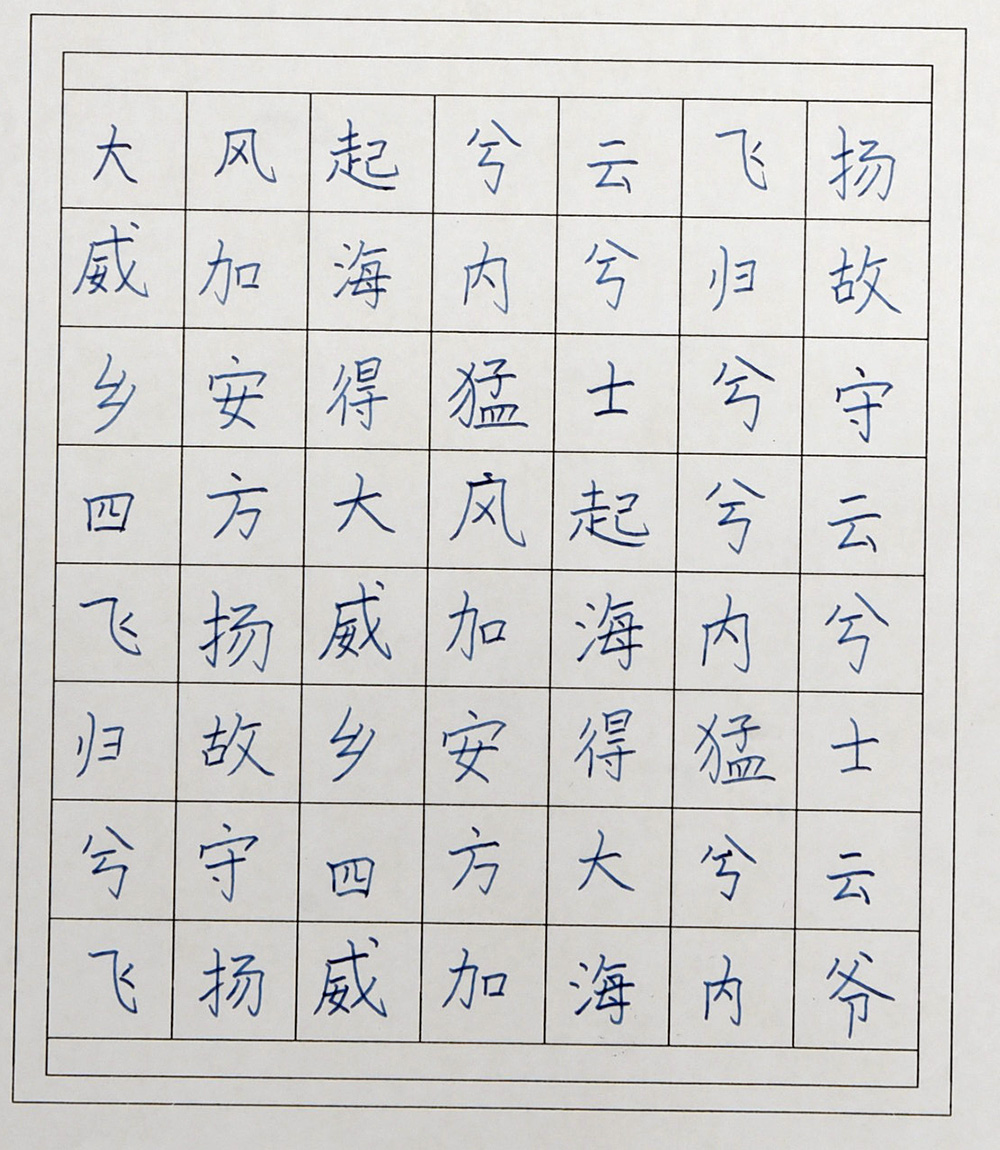 大风起兮云飞扬
威加海内兮归故
乡安得猛士兮守
四方大风起兮云
飞扬威加海内兮
归故乡安得猛士
兮守四方大兮云
飞扬威加海内爷